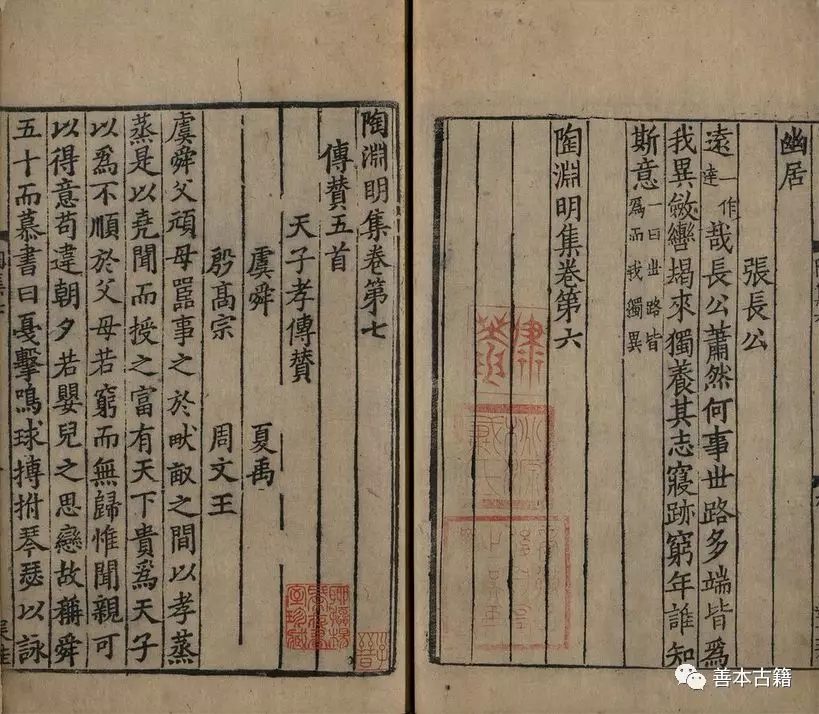 幽居
張長公
遠一作達哉長公蕭然何事世路多端皆爲
我異斂轡朅來獨養其志寢跡窮年誰知
斯意一曰世路皆爲而我獨異
陶淵明集卷第六
陶淵明集卷第七
傳贊五首
天子孝傳贊
虞舜 夏禹
殷高宗 周文王
虞舜父頑母嚚事之於畎畝之間以孝蒸
蒸是以堯聞而授之富有天下貴爲天子
以爲不順於父母若窮而無歸惟聞親可
以得意苟違朝夕若嬰兒之思戀故稱舜
五十而慕書曰戛擊鳴球搏拊琴瑟以詠
善本古籍